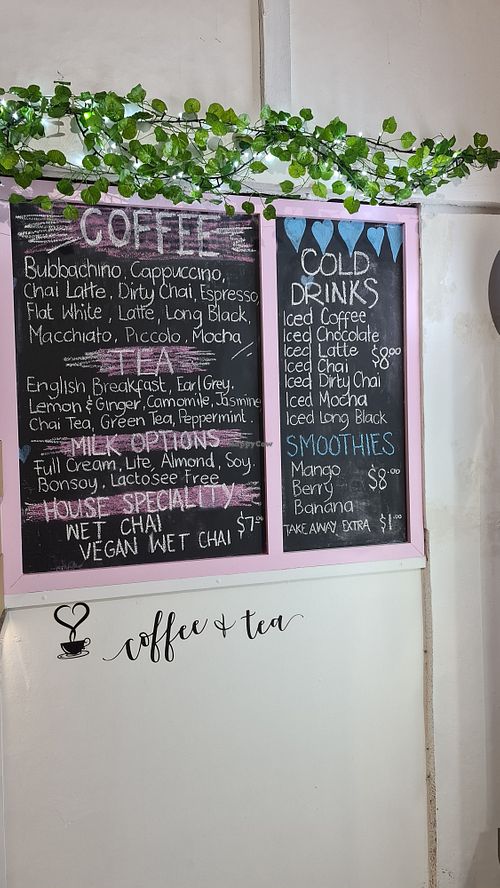 COFFEE
Bubbachino, Cappuccino,
Chai Latte, Dirty Chai, Espresso,
Flat White, Latte, Long Black,
Macchiato, Piccolo, Mocha
TEA
English Breakfast, Earl Grey.
Lemon & Ginger, Camomile, Jasmine
Chai Tea, Green Tea, Peppermint.
MILK OPTIONS
Full Cream, Lite, Almond, Soy.
Bonsoy, Lactosee Free
HOUSE SPECIALITY
WET CHAI
VEGAN WET CHAI $7.00
COLD
DRINKS
Iced Coffee
Iced Chocolate
Iced Latte $8.00
Iced Chai
Iced Dirty Chai
Iced Mocha
Iced Long Black
SMOOTHIES
Mango
Berry $8.00
Banana
TAKE AWAY EXTRA $1.00
coffee + tea